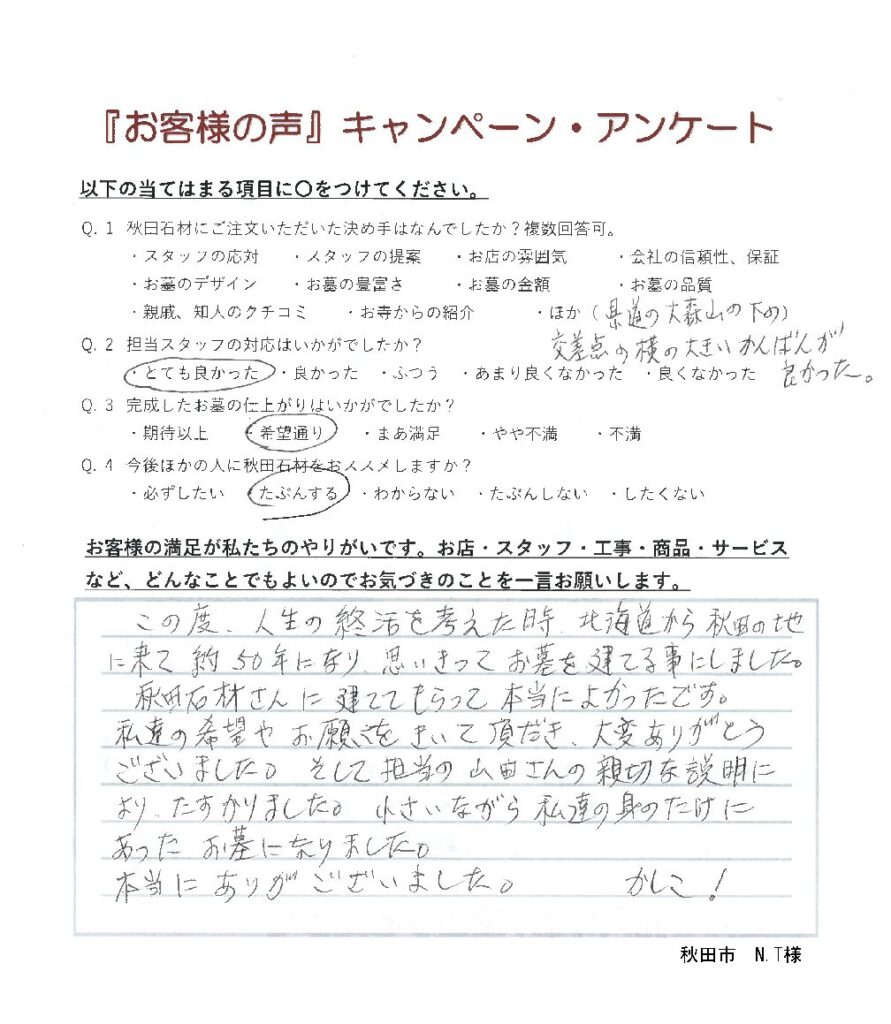 『お客様の声』キャンペーン・アンケート
以下の当てはまる項目に〇をつけてください。
Q. 1 秋田石材にご注文いただいた決め手はなんでしたか？複数回答可。
・スタッフの応対 ・スタッフの提案 ・お店の雰囲気 ・会社の信頼性、保証
・お墓のデザイン ・お墓の豊富さ ・お墓の金額 ・お墓の品質
・親戚、知人のクチコミ ・お寺からの紹介 ・ほか（県道の大森山の下の）
交差点の横の大きいかんばんが
良かった。
Q. 2 担当スタッフの対応はいかがでしたか？
・とても良かった ・良かった ・ふつう ・あまり良くなかった ・良くなかった
Q. 3 完成したお墓の仕上がりはいかがでしたか？
・期待以上 ・希望通り ・まあ満足 ・やや不満 ・不満
Q. 4 今後ほかの人に秋田石材をおススメしますか？
・必ずしたい ・たぶんする ・わからない ・たぶんしない ・したくない
お客様の満足が私たちのやりがいです。お店・スタッフ・工事・商品・サービス
など、どんなことでもよいのでお気づきのことを一言お願いします。
この度、人生の終活を考えた時、北海道から秋田の地
に来て約50年になり、思いきってお墓を建てる事にしました。
秋田石材さんに建ててもらって本当によかったです。
私達の希望やお願いをきいて頂だき、大変ありがとう
ございました。そして担当の山田さんの親切な説明に
より、たすかりました。小さいながら私達の身のたけに
あったお墓になりました。
本当にありがございました。 かしこ！
秋田市 N.T様